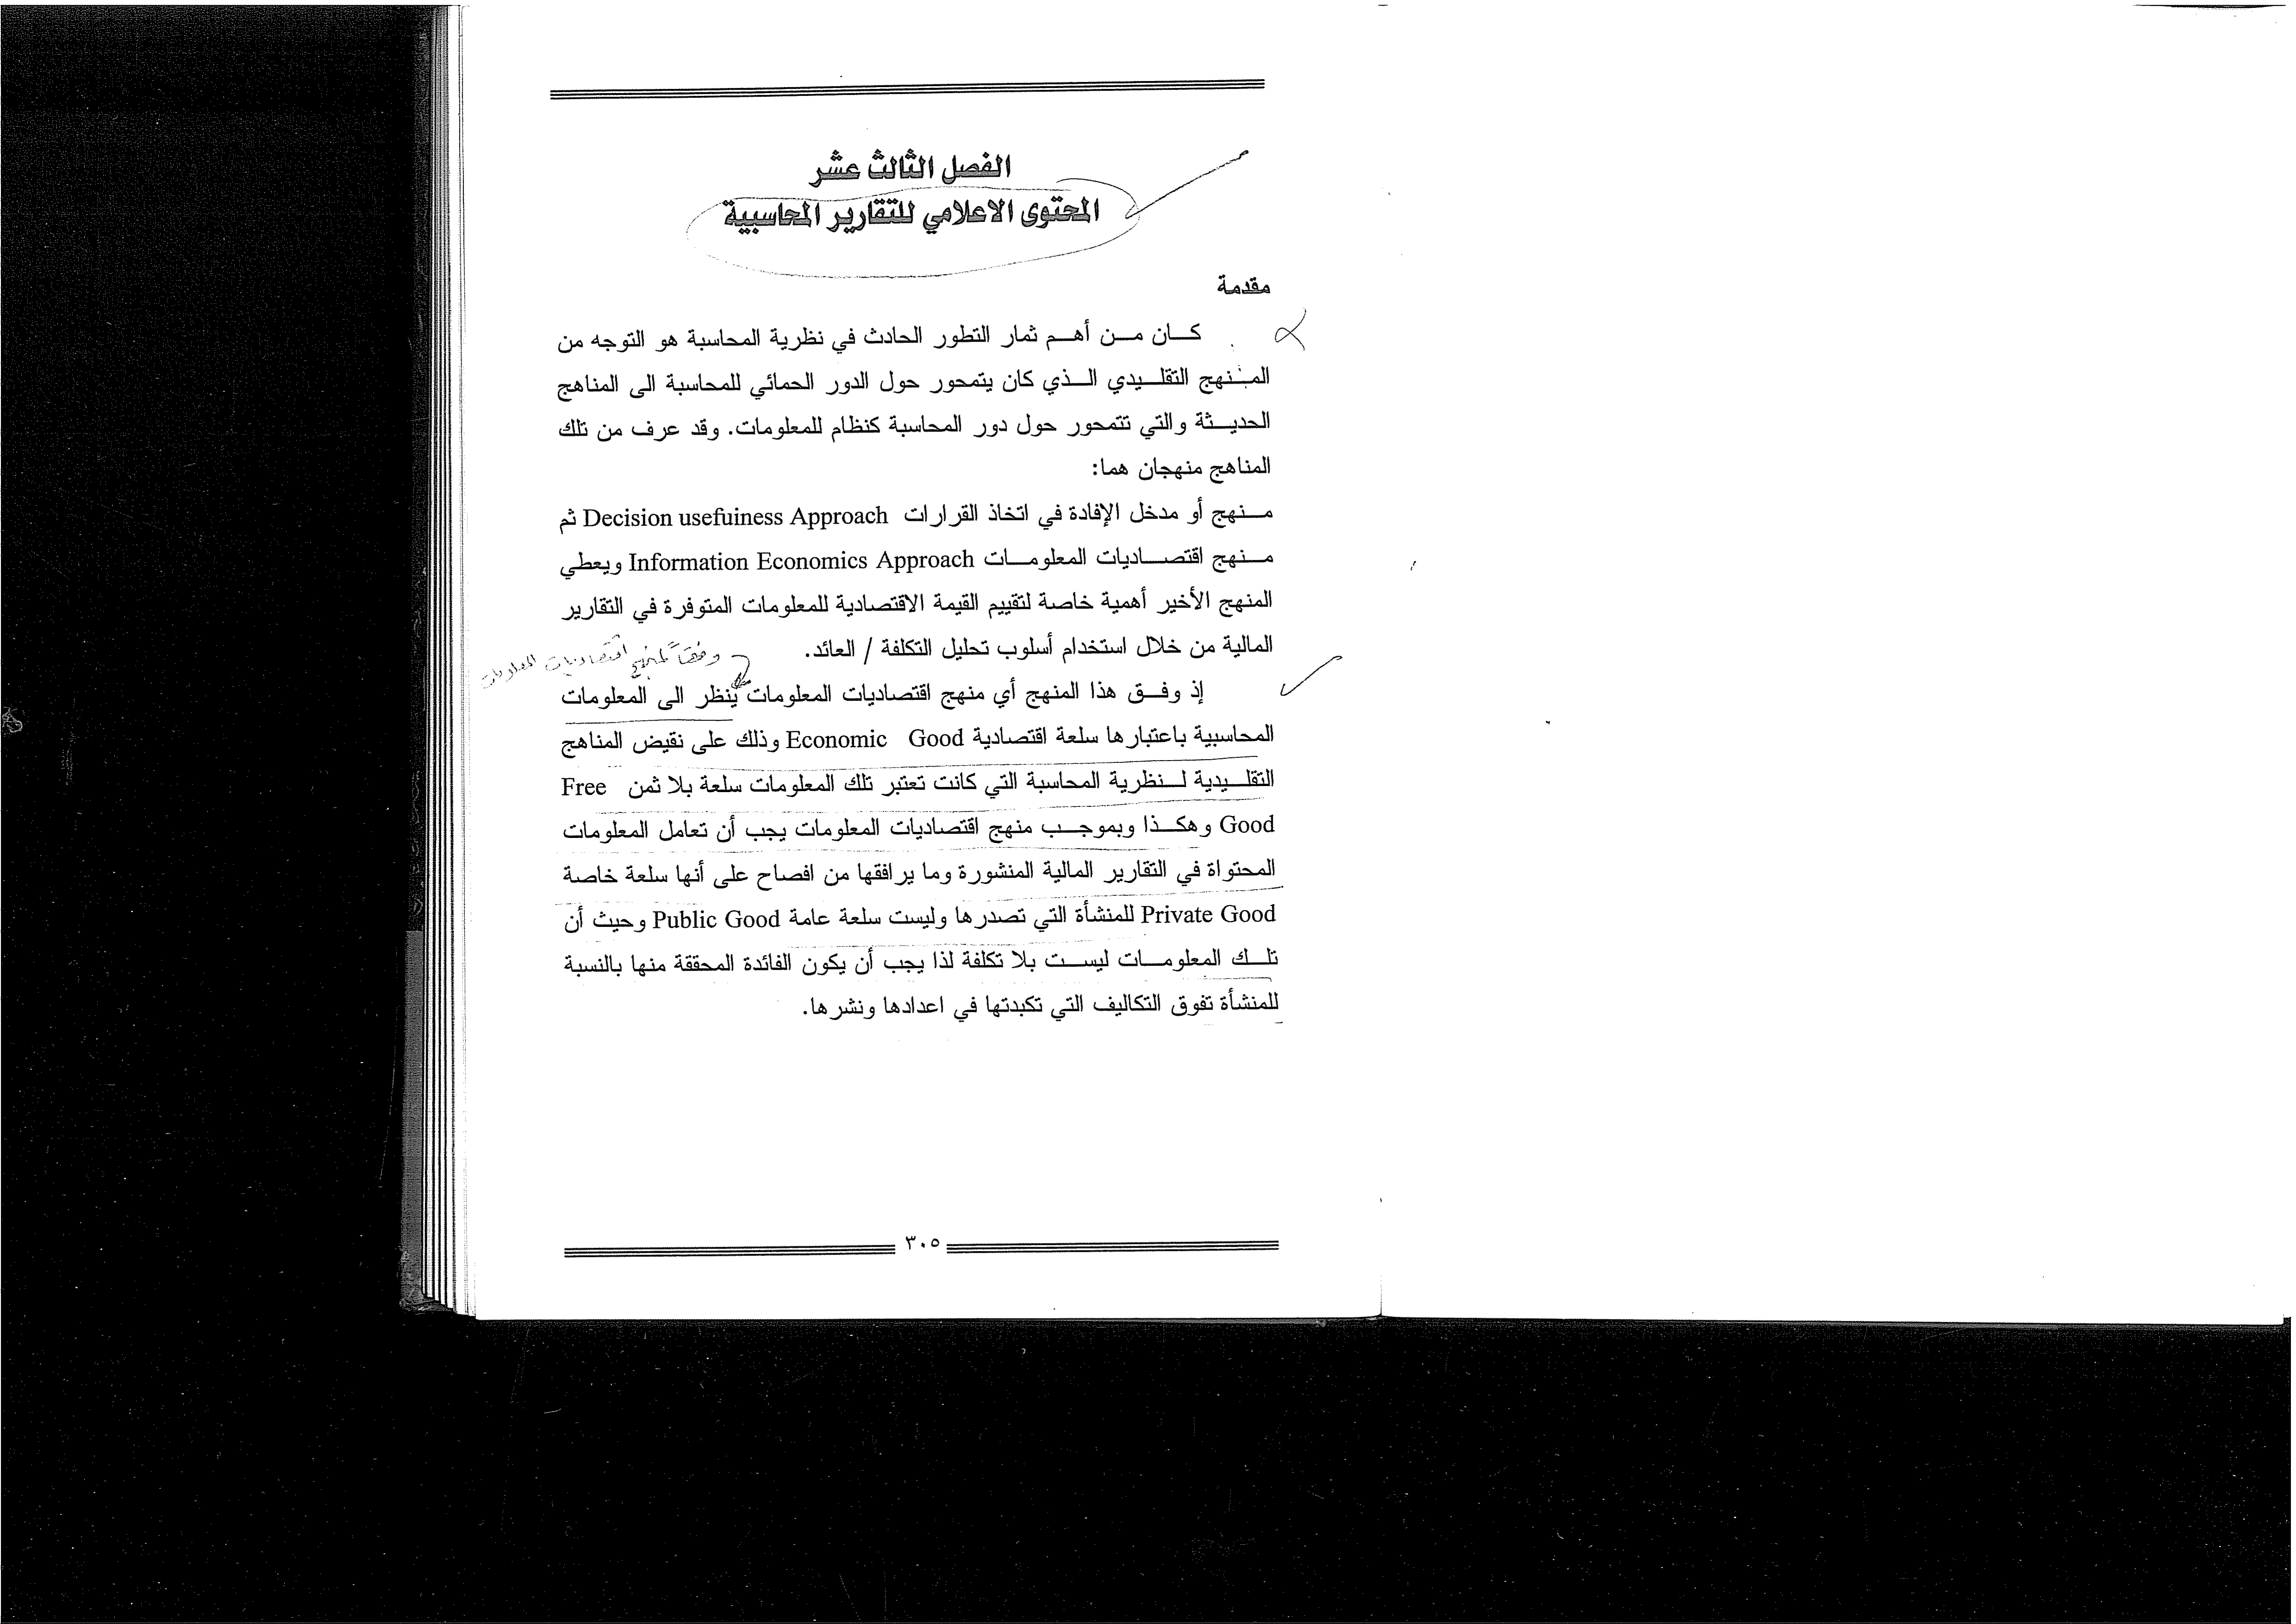 الفصل الثالث عشر
المحتوى الاعلامي للتقارير المحاسبية
مقدمة
كان من أهم ثمار التطور الحادث في نظرية المحاسبة هو التوجه من
المنهج التقليدي الذي كان يتمحور حول الدور الحمائي للمحاسبة الى المناهج
الحديثة والتي تتمحور حول دور المحاسبة كنظام للمعلومات. وقد عرف من تلك
المناهج منهجان هما:
منهج أو مدخل الإفادة في اتخاذ القرارات Decision usefuiness Approach ثم
منهج اقتصاديات المعلومات Information Economics Approach ويعطي
المنهج الأخير أهمية خاصة لتقييم القيمة الاقتصادية للمعلومات المتوفرة في التقارير
المالية من خلال استخدام أسلوب تحليل التكلفة / العائد.
وفقاً لمنهج اقتصاديات المعلومات
إذ وفق هذا المنهج أي منهج اقتصاديات المعلومات ينظر الى المعلومات
المحاسبية باعتبارها سلعة اقتصادية Economic Good وذلك على نقيض المناهج
التقليدية لنظرية المحاسبة التي كانت تعتبر تلك المعلومات سلعة بلا ثمن Free
Good وهكذا وبموجب منهج اقتصاديات المعلومات يجب أن تعامل المعلومات
المحتواة في التقارير المالية المنشورة وما يرافقها من افصاح على أنها سلعة خاصة
Private Good للمنشأة التي تصدرها وليست سلعة عامة Public Good وحيث أن
تلك المعلومات ليست بلا تكلفة لذا يجب أن يكون الفائدة المحققة منها بالنسبة
للمنشأة تفوق التكاليف التي تكبدتها في اعدادها ونشرها.
٣٠٥